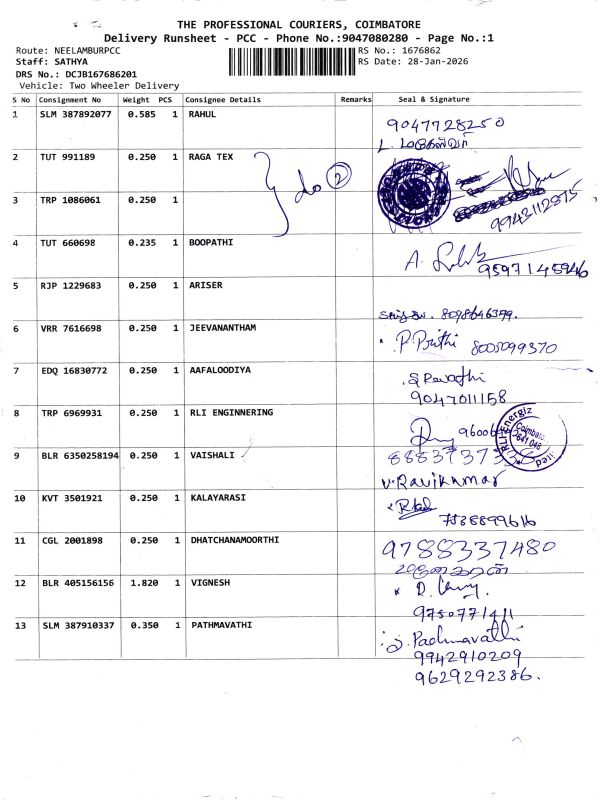 THE PROFESSIONAL COURIERS, COIMBATORE
Delivery Runsheet - PCC - Phone No.:9047080280 - Page No.:1
Route: NEELAMBURPCC RS No.: 1676862
Staff: SATHYA RS Date: 28-Jan-2026
DRS No.: DCJB167686201
Vehicle: Two Wheeler Delivery
S No Consignment No Weight PCS Consignee Details Remarks Seal & Signature
1 SLM 387892077 0.585 1 RAHUL
9047728250
2 TUT 991189 0.250 1 RAGA TEX
do 2
3 TRP 1086061 0.250 1
9943112875
4 TUT 660698 0.235 1 BOOPATHI
9597145946
5 RJP 1229683 0.250 1 ARISER
8098646399.
6 VRR 7616698 0.250 1 JEEVANANTHAM
P. Prithi 8005099370
7 EDQ 16830772 0.250 1 AAFALOODIYA
S Revathi
9047011158
8 TRP 6969931 0.250 1 RLI ENGINNERING
RLI Energiz
Coimbato
641 048
9 BLR 6350258194 0.250 1 VAISHALI
V. Ravikumar
10 KVT 3501921 0.250 1 KALAYARASI
7538899616
11 CGL 2001898 0.250 1 DHATCHANAMOORTHI
9788337480
12 BLR 405156156 1.820 1 VIGNESH
9750771411
13 SLM 387910337 0.350 1 PATHMAVATHI
Padmavathi
9942910209
9629292386.